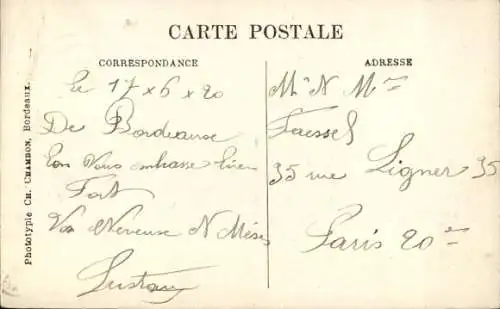 CARTE POSTALE
CORRESPONDANCE
Le 17 x 6 x 20
De Bordeaux
Vous embrasse bien
Fort
Vos Neveuse N
Gustav
ADRESSE
Mr N Mme
Faessel
35 rue Ligner 35
Paris 20e
Phototypie CH. CHAMBON, Bordeaux.